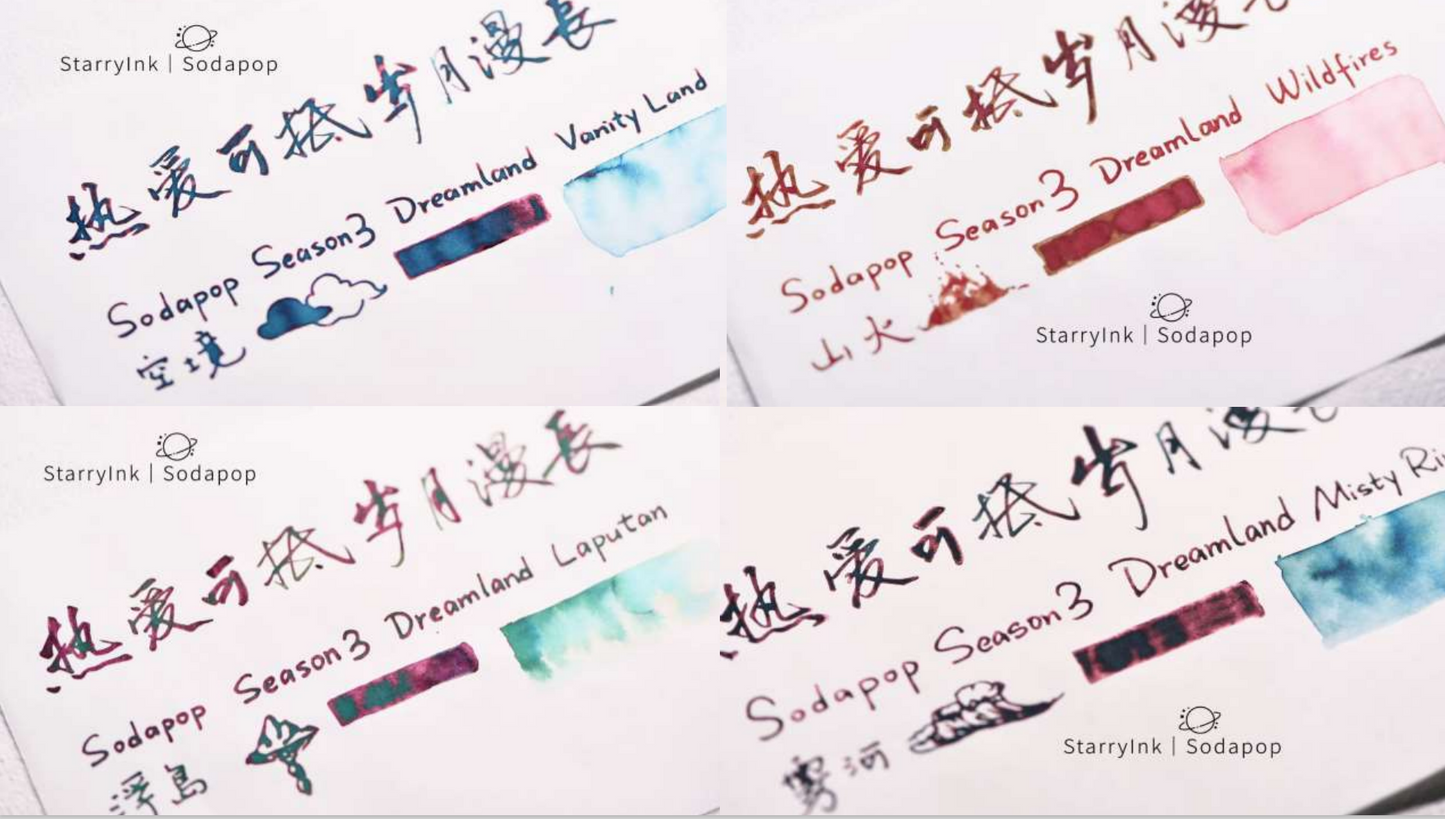 StarryInk | Sodapop
热爱可抵岁月漫長
Sodapop Season3 Dreamland Vanity Land
空境
热爱可抵岁月漫
Sodapop Season3 Dreamland Wildfires
山火
StarryInk | Sodapop
StarryInk | Sodapop
热爱可抵岁月漫長
Sodapop Season3 Dreamland Laputan
浮島
热爱可抵岁月漫
Sodapop Season3 Dreamland Misty Ri
雾河
StarryInk | Sodapop